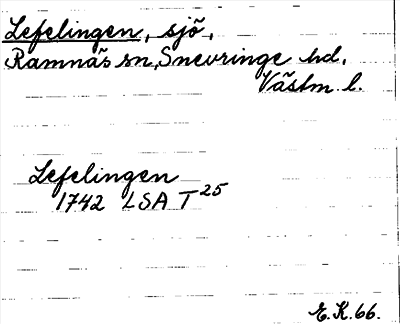 Lefelingen, sjö,
Ramnäs sn, Snevringe hd,
Västm. l.
Lefelingen
1742 LSA T 25
E. K. 66.